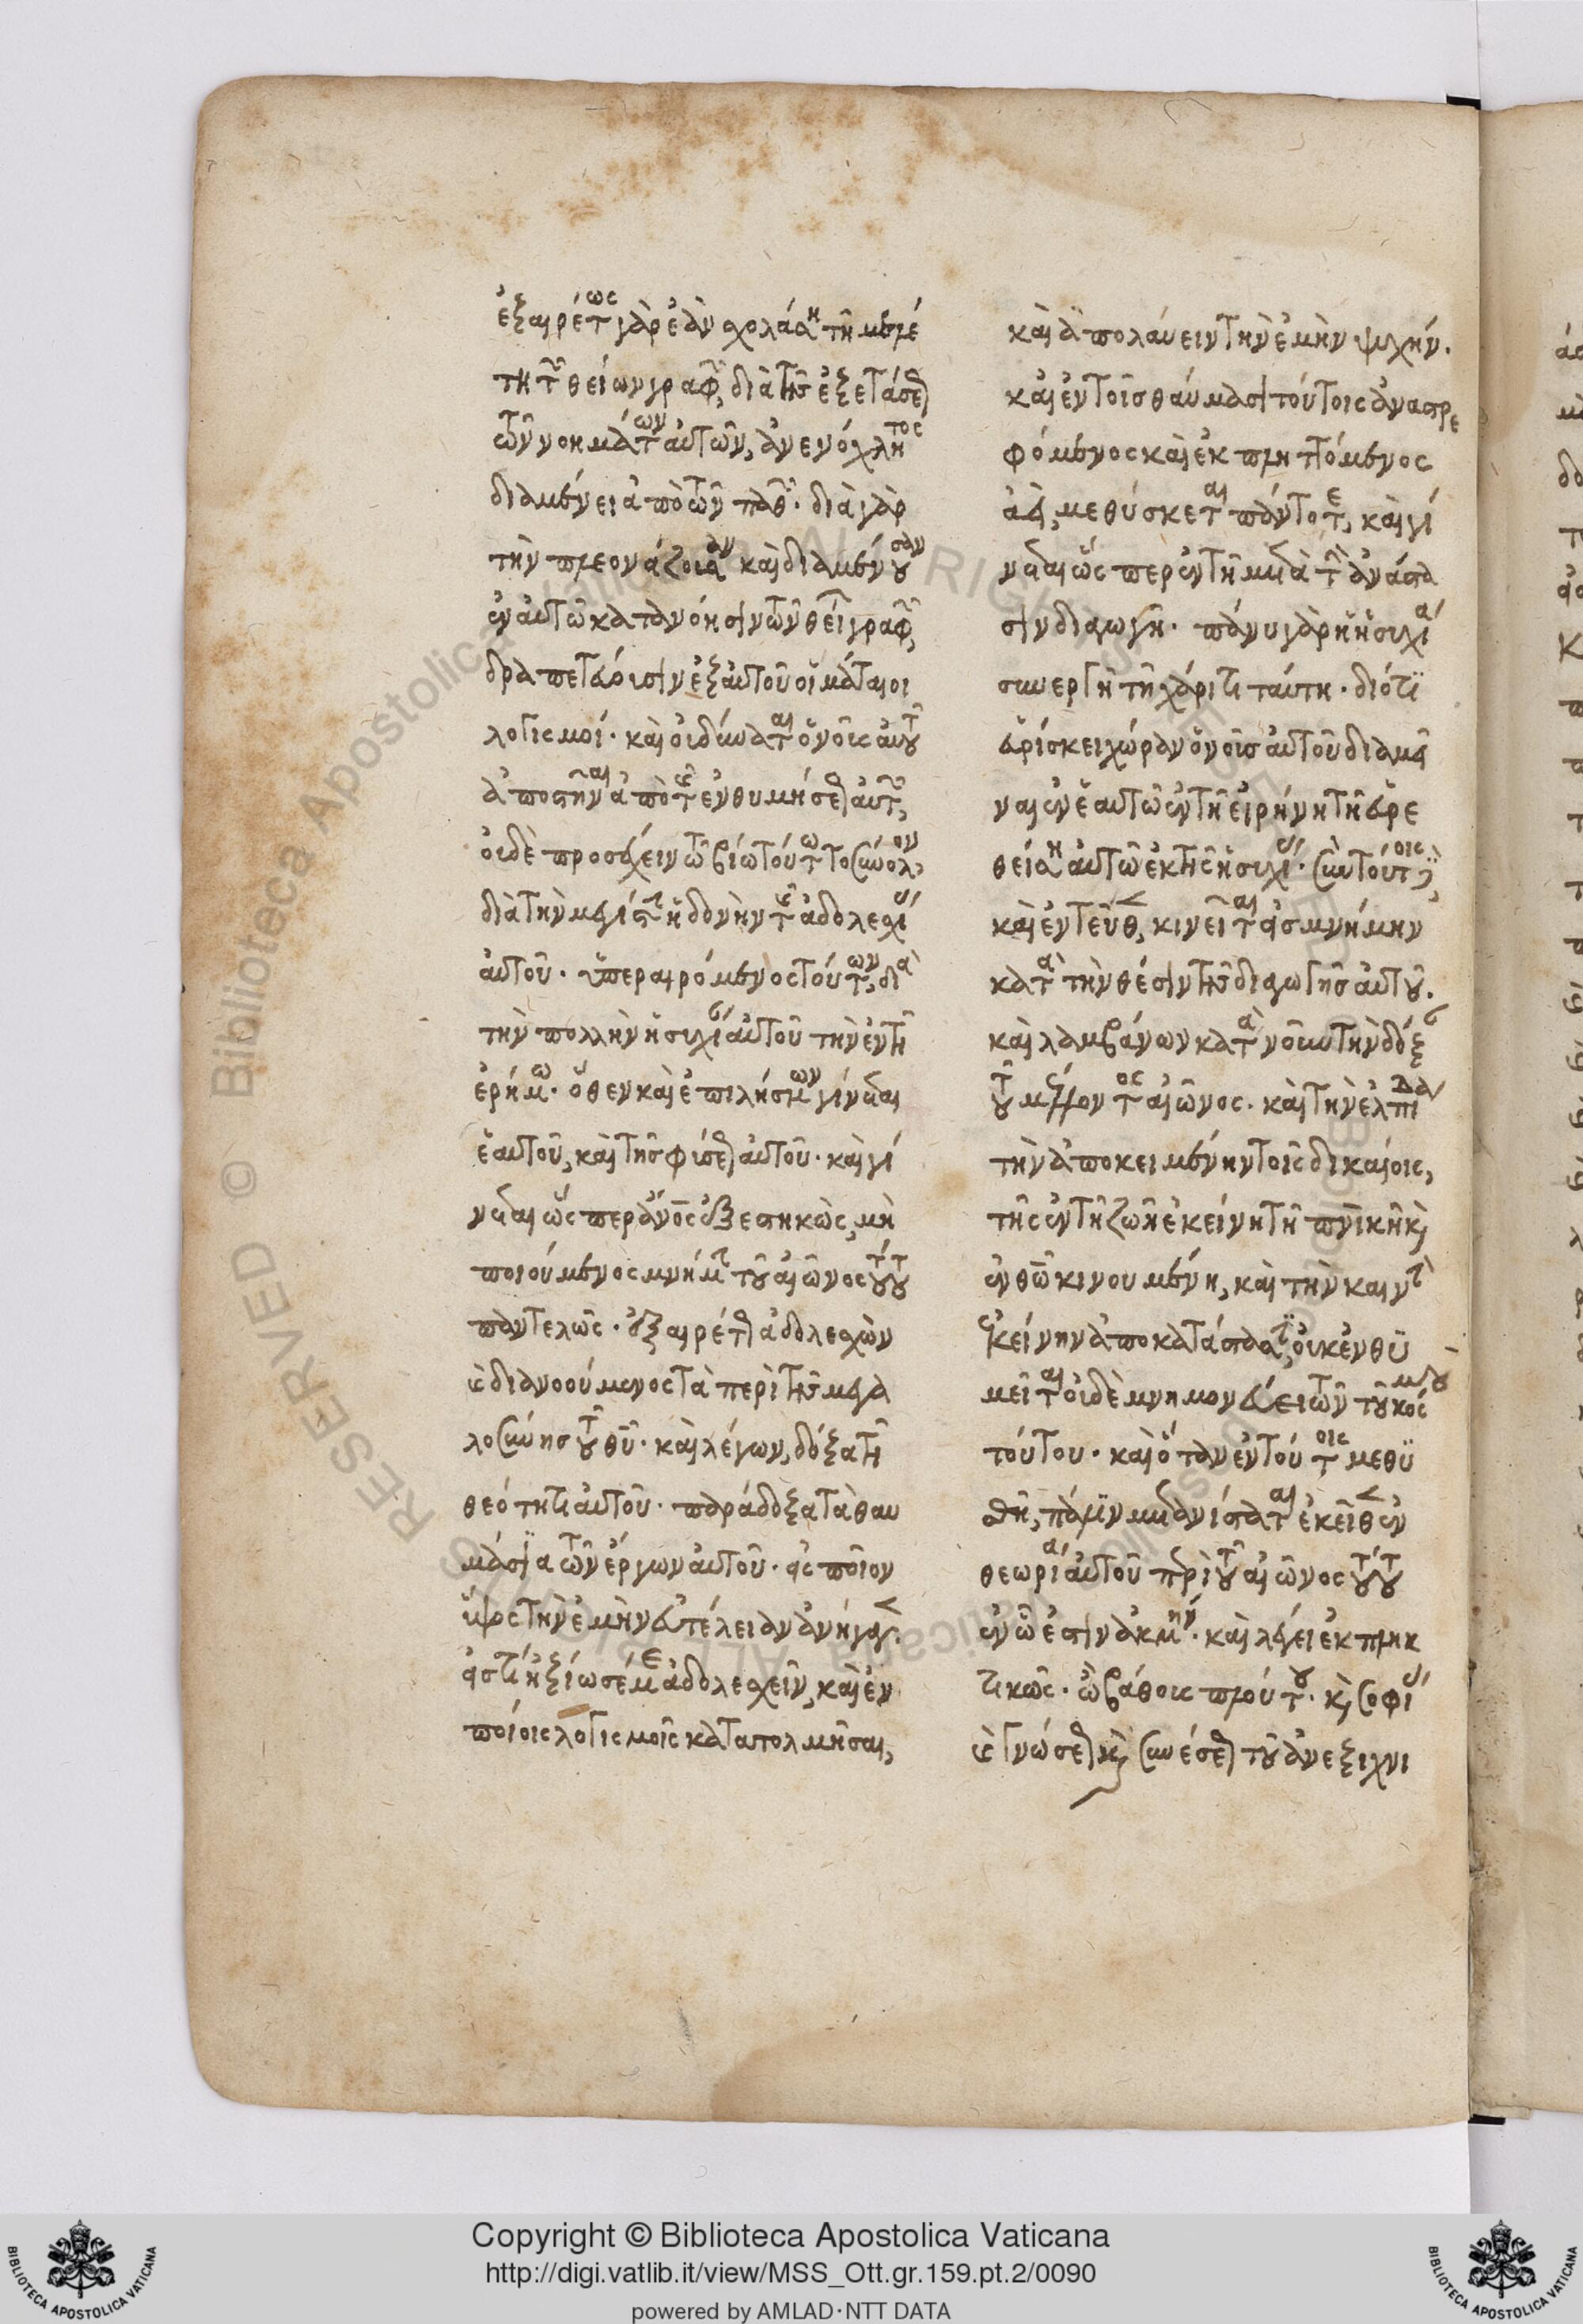 ἐξαιρέτως γὰρ ἐὰν σχολάση τῆ μελέ
τη τῶν θείων γραφῶν, διὰ τῆς ἐξετάσεως
τῶν νοημάτων αὐτῶν, ἀνενόχλητος
διαμένει ἀπὸ τῶν παθῶν. διὰ γὰρ
τὴν πλεονάζουσαν καὶ διαμένουσαν
ἐν αὐτῶ κατανόησιν τῶν θείων γραφῶν,
δραπετεύουσιν ἐξ αὐτοῦ οἱ μάταιοι
λογισμοί. καὶ οὐ δύναται ὁ νοῦς αὐτοῦ
ἀποστῆναι ἀπὸ τῆς ἐνθυμήσεως αὐτῶν,
οὐδὲ προσέχειν τῶ βίω τούτω τοσύνολον,
διὰ τὴν μεγίστην ἡδονὴν τῆς ἀδολεσχίας
αὐτοῦ. ὑπεραιρόμενος τούτων, διὰ
τὴν πολλὴν ἡσυχίαν αὐτοῦ τὴν ἐν τῆ
ἐρήμω. ὅθεν καὶ ἐπιλήσμων γίνεται
ἑαυτοῦ, καὶ τῆς φύσεως αὐτοῦ. καὶ γί
νεται ὥσπερ ἄνος ἐξεστηκὼς, μὴ
ποιούμενος μνήμην τοῦ αἰῶνος τούτου
παντελῶς. ἐξαιρέτως ἀδολεσχῶν
καὶ διανοούμενος τὰ περὶ τῆς μεγα
λοσύνης τοῦ θυ. καὶ λέγων, δόξα τῆ
θεότητι αὐτοῦ. παράδοξα τὰ θαυ
μάσια τῶν ἔργων αὐτοῦ. εἰς ποῖον
ὕψος τὴν ἐμὴν εὐτέλειαν ἀνήγαγεν.
εἰς τί ἠξίωσέ με ἀδολεσχεῖν, καὶ ἐν
ποίοις λογισμοῖς κατατολμῆσαι,
καὶ ἀπολαύειν τὴν ἐμὴν ψυχήν.
καὶ ἐν τοῖς θαύμασι τούτοις ἀναστρε
φόμενος καὶ ἐκπληττόμενος
ἀεὶ, μεθύσκεται πάντοτε, καὶ γί
νεται ὥσπερ ἐν τῆ μετὰ τὴν ἀνάστα
σιν διαγωγῆ. πάνυ γὰρ ἡ ἡσυχία
συνεργὴ τῆ χάριτι ταύτη. διότι
εὑρίσκει χώραν ὁ νοῦς αὐτοῦ διαμεῖ
ναι ἐν ἑαυτῶ ἐν τῆ εἰρήνη τῆ εὑρε
θείση αὐτῶ ἐκ τῆς ἡσυχίας. σὺν τούτοις δὲ,
καὶ ἐντεῦθεν, κινεῖται εἰς μνήμην
κατὰ τὴν θέσιν τῆς διαγωγῆς αὐτοῦ.
καὶ λαμβάνων κατὰ νοῦν τὴν δόξαν
τοῦ μέλλοντος αἰῶνος. καὶ τὴν ἐλπίδα
τὴν ἀποκειμένην τοῖς δικαίοις,
τῆς ἐν τῆ ζωῆ ἐκείνη τῆ πνικῆ καὶ
ἐν θῶ κινουμένη, καὶ τὴν καινὴν
ἐκείνην ἀποκατάστασιν, οὐκ ἐνθυ
μεῖται οὐδὲ μνημονεύει τῶν τοῦ κόσμου
τούτου. καὶ ὅταν ἐν τούτοις μεθυ
σθῆ, πάλιν μετανίσταται ἐκεῖθεν ἐν
θεωρία αὐτοῦ περὶ τοῦ αἰῶνος τούτου
ἐν ὧ ἐστιν ἀκμήν. καὶ λέγει ἐκπληκ
τικῶς. ὢ βάθους πλούτου. καὶ σοφίας
καὶ γνώσεως καὶ συνέσεως τοῦ ἀνεξιχνι
Copyright © Biblioteca Apostolica Vaticana
http://digi.vatlib.it/view/MSS_Ott.gr.159.pt.2/0090
powered by AMLAD·NTT DATA